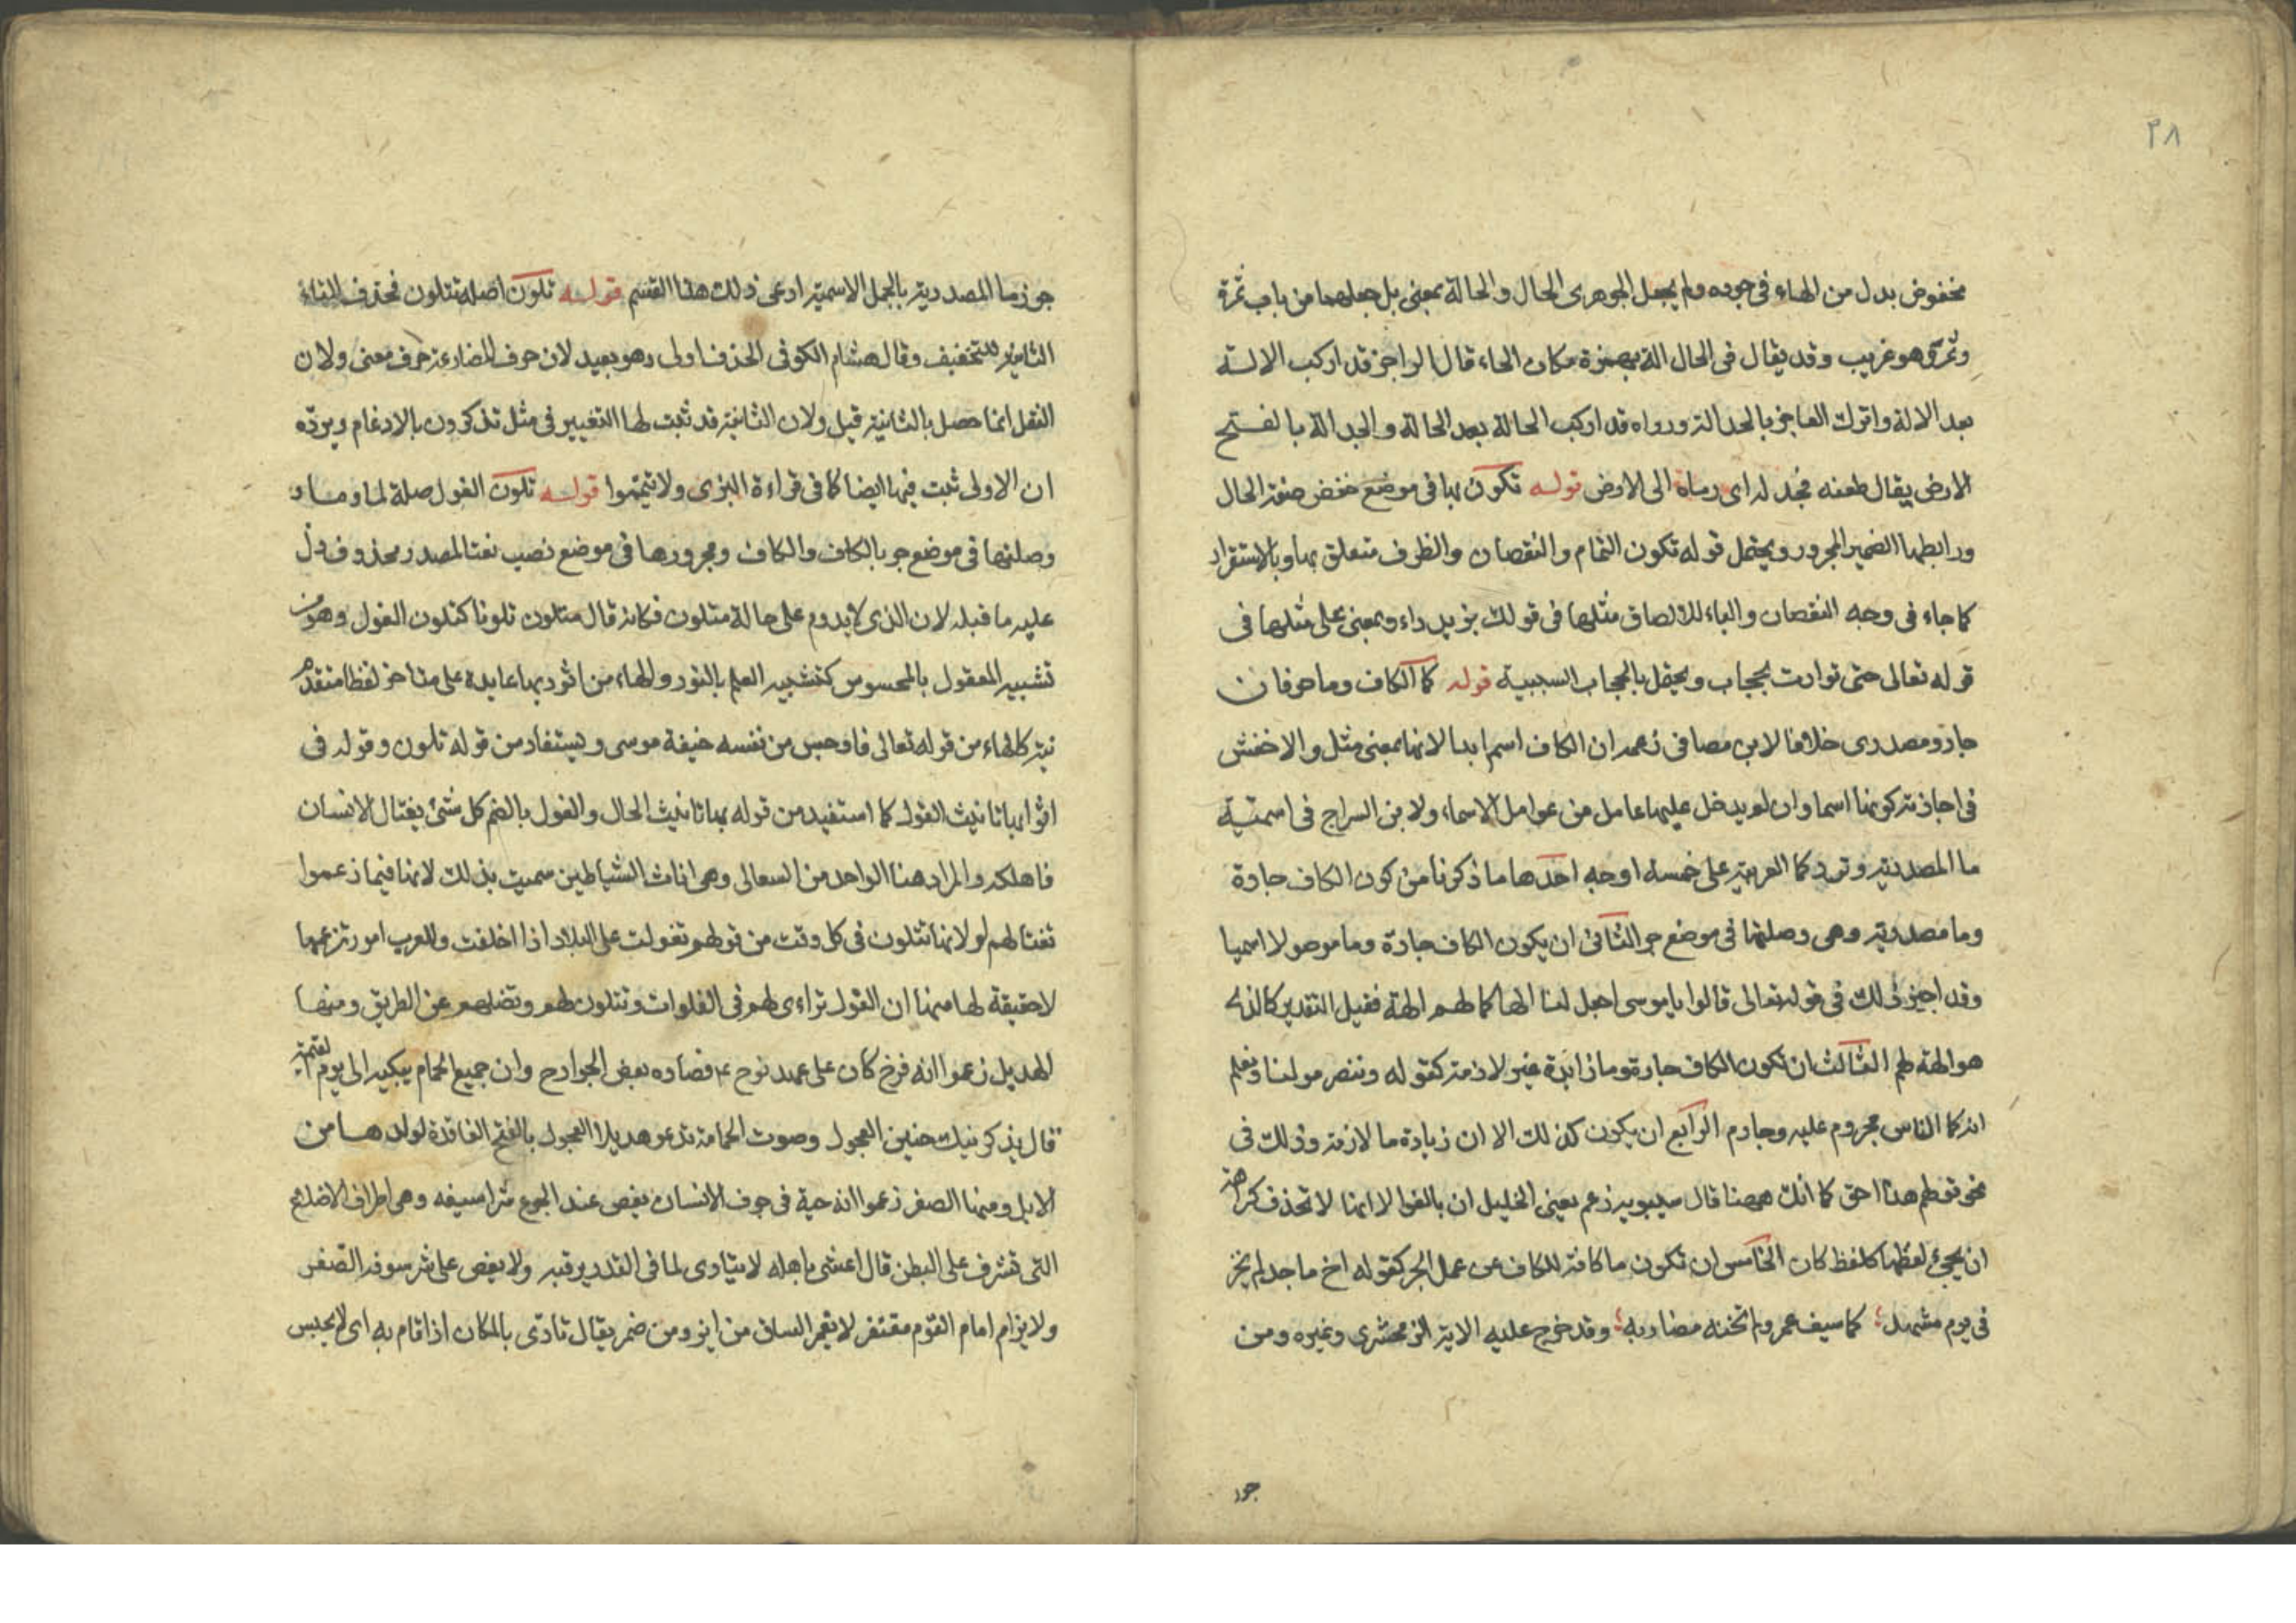 ٣٨
مخفوض بدل من الهاء فى جوده ولم يجعل الجوهرى الحال والحالة بمعنى بل جعلهما من باب تمرة
وتمر وهو غريب وقد يقال فى الحال الة بهمزة مكان الحاء قال الراجز قد اركب الالة
بعد الالة واترك العاجز بالجدالة ورواه قد اركب الحالة بعد الحالة والجدالة بالفتح
الارض يقال طعنه فجدله اى رماه الى الارض قوله تكون بها فى موضع خفض صفة الحال
ورابطها الضمير المجرور ويحتمل قوله تكون التمام والنقصان والظرف متعلق بها وبالاستقرار
كما جاء فى وجه النقصان والباء للالصاق مثلها فى قولك بزيد داء وبمعنى على مثلها فى
قوله تعالى حتى توارت بحجاب ويحتمل بالحجاب السببية قوله كما الكاف وما حرفان
جار ومصدرى خلافا لابن مضا فى زعمه ان الكاف اسم ابدا لانها بمعنى مثل والاخفش
فى اجازته كونها اسما وان لم يدخل عليها عامل من عوامل الاسماء ولابن السراج فى اسمية
ما المصدرية وترد كما العربية على خمسة اوجه احدها ما ذكرنا من كون الكاف جارة
وما مصدرية وهى وصلتها فى موضع جر الثانى ان يكون الكاف جارة وما موصولا اسميا
وقد اجيز ذلك فى قوله تعالى قالوا يا موسى اجعل لنا الها كما لهم الهة فقيل التقدير كالذى
هو الهة لهم الثالث ان تكون الكاف جارة وما زائدة غير لازمة كقوله وننصر مولنا ونعلم
انه كما الناس مجروم عليه وجارم الرابع ان يكون كذلك الا ان زيادة ما لازمة وذلك فى
نحو قولهم هذا حق كما انك ههنا قال سيبويه زعم يعنى الخليل ان بالغوا لا انها لا تحذف كراهة
ان يجئ لفظها كلفظ كان الخامس ان تكون ما كافة للكاف عن عمل الجر كقوله اخ ماجد لم يخز
فى يوم مشهد كما سيف عمرو لم تخنه مضاربه وقد خرج عليه الاية الزمخشرى وغيره ومن
جوز
جوز ما المصدرية بالجمل الاسمية ادعى ذلك هذا القسم قوله تلون اصله تتلون فحذف التاء
الثانية للتخفيف وقال هشام الكوفى الحذف اولى وهو بعيد لان حرف المضارعة حرف معنى ولان
الثقل انما حصل بالثانية قيل ولان الثانية قد ثبت لها التغيير فى مثل تذكرون بالادغام ويرده
ان الاولى ثبت فيها ايضا كما فى قراءة البزى ولا تيمموا قوله تلون الغول صلة لما وما و
وصلتها فى موضع جر بالكاف والكاف ومجرورها فى موضع نصب نعتا لمصدر محذوف دل
عليه ما قبله لان الذى لا يدوم على حالة متلون فكانه قال متلون تلونا كتلون الغول وهو من
تشبيه المعقول بالمحسوس كتشبيه العلم بالنور والهاء من اثوابها عايدة على متاخر لفظا متقدم
نية كالهاء من قوله تعالى فاوجس من نفسه خيفة موسى ويستفاد من قوله تلون وقوله فى
اثوابها تانيث الغول كما استفيد من قوله بها تانيث الحال والغول بالضم كل شئ يغتال الانسان
فاهلكه والمراد هنا الواحد من السعالى وهى اناث الشياطين سميت بذلك لانها فيما زعموا
تغتالهم لو لانها تتلون فى كل وقت من قولهم تغولت على البلاد اذا اختلفت وللعرب امور تزعمها
لا حقيقة لها منها ان الغول تراءى لهم فى الفلوات وتتلون لهم وتضلهم عن الطريق ومنها
الهديل زعموا انه فرخ كان على عهد نوح ع فصاده بعض الجوارح وان جميع الحمام يبكيه الى يوم القيمة
قال يذكرنيك حنين العجول وصوت الحمامة تدعو هديلا العجول بالفتح الفاقدة لولدها من
الابل ومنها الصفر زعموا انه حية فى جوف الانسان يعض عند الجوع شراسيفه وهى اطراف الاضلاع
التى تشرف على البطن قال اعشى باهله لا يتاوى لما فى القدر يرقبه ولا يعض على شرسوفه الصفر
ولا يزام امام القوم مقتفر لا يغمز الساق من اين ومن ضمر يقال تادى بالمكان اذا قام به اى لا يحبس